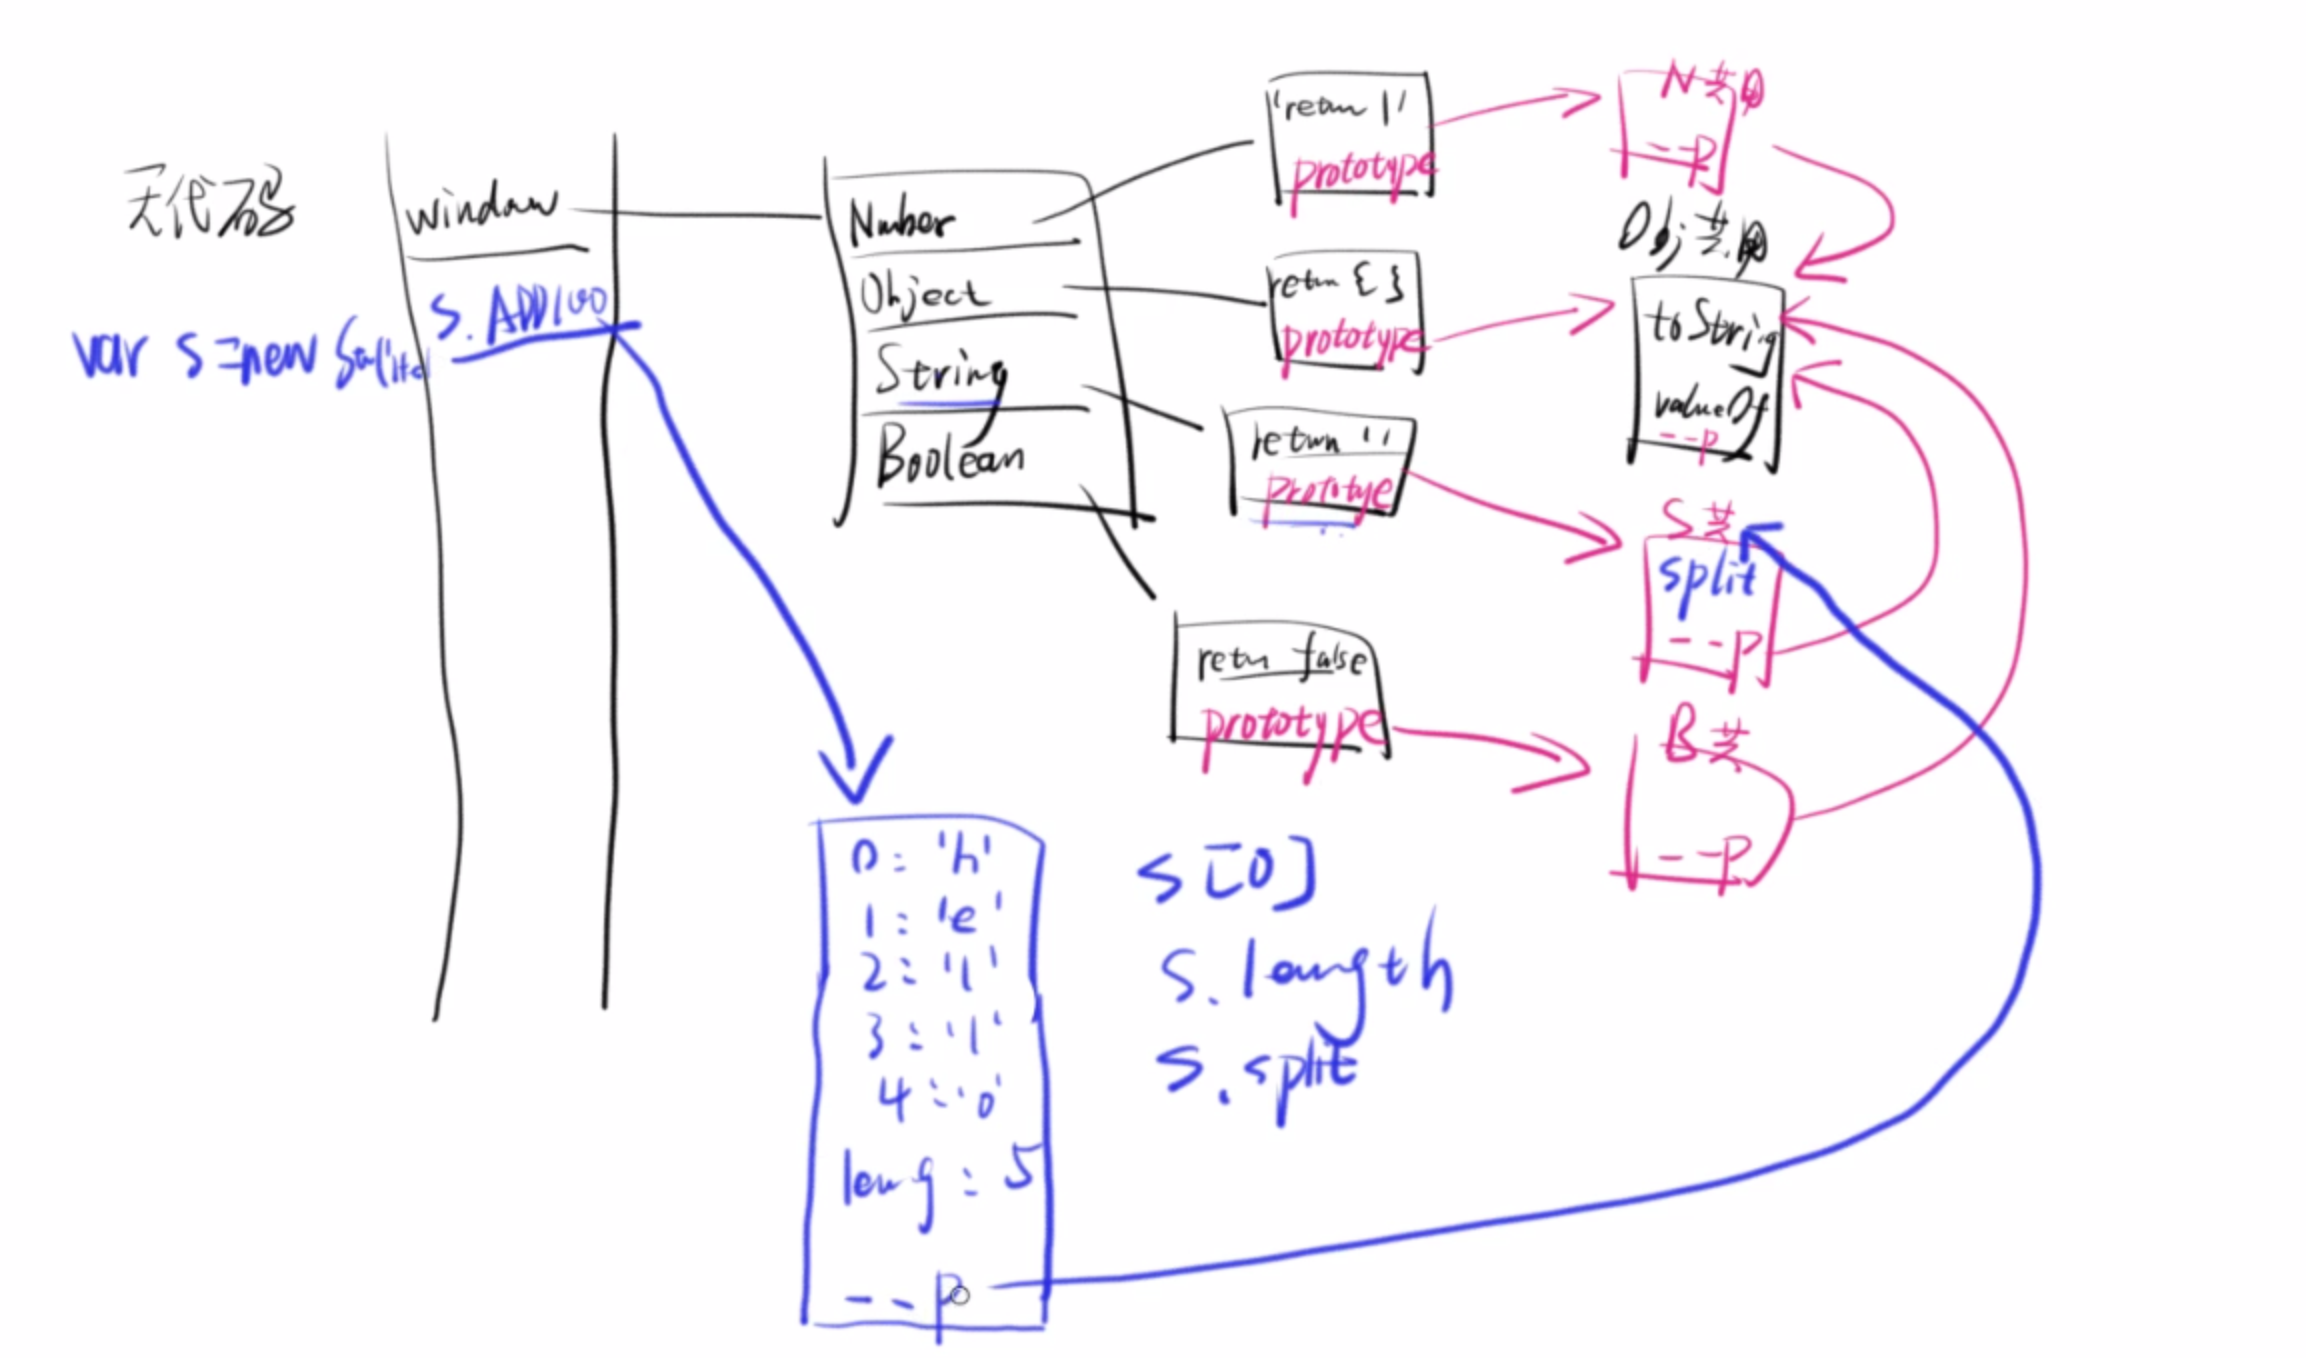 无代码
window
var s = new
S. ADD100
Number
Object
String
Boolean
'return 1'
prototype
return { }
prototype
return ''
prototye
retn false
prototype
N共
--P
Obj共
toString
valueOf
--p
S共
split
--P
B共
--P
0 : 'h'
1 : 'e'
2 : 'l'
3 : 'l'
4 : 'o'
leng : 5
--p
s[0]
s.length
s.split